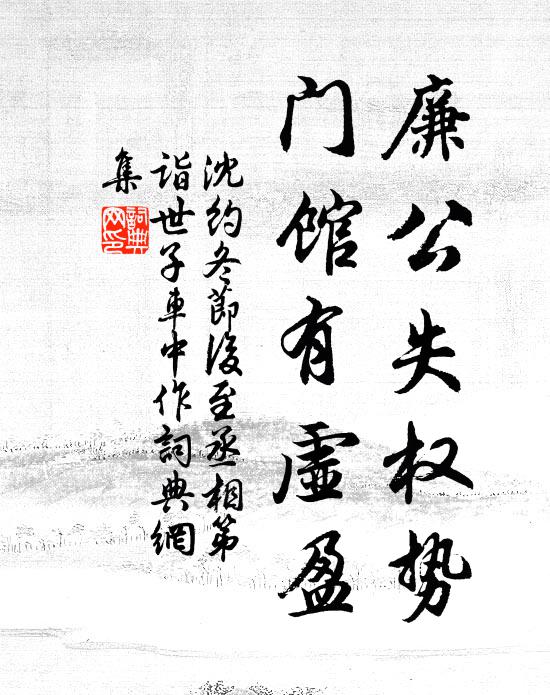 廉公失权势
门馆有虚盈
沈约冬节後至丞相第
诣世子车中作词典網
集
詞典
网印